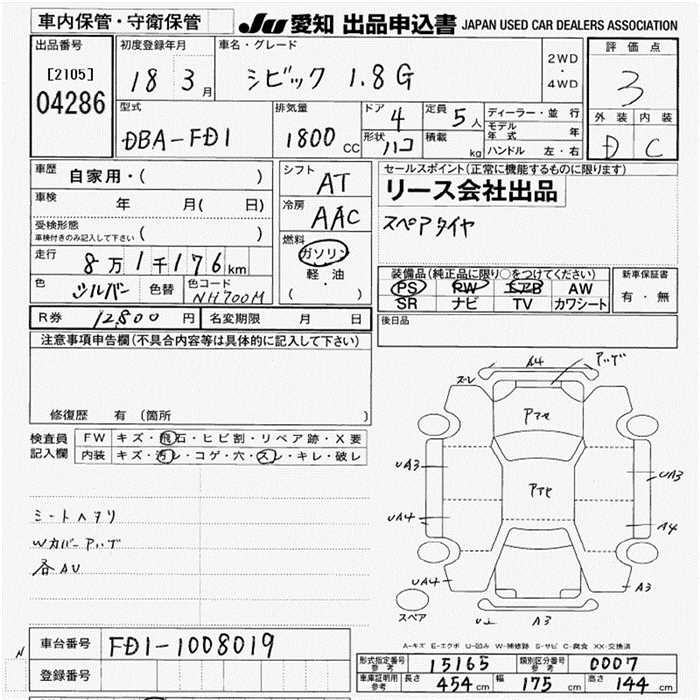 車内保管・守衛保管
JU 愛知 出品申込書 JAPAN USED CAR DEALERS ASSOCIATION
出品番号
[2105]
04286
初度登録年月
18 3月
車名・グレード
シビック 1.8G
2WD
・
4WD
評価点
3
外装 内装
D C
型式
DBA-FD1
排気量
1800 CC
ドア 4
形状 ハコ
定員 5人
積載 kg
ディーラー・並行
モデル年式 年
ハンドル 左・右
車歴
自家用・( )
車検
年 月( 日)
受検形態
車検付きのみ記入して下さい ( )
走行
8万1千176km
色 シルバー 色替 色コード NH700M
シフト AT
冷房 AAC
燃料
ガソリン
軽・油
( )
セールスポイント(正常に機能するものに限ります)
リース会社出品
スペアタイヤ
装備品(純正品に限り○をつけてください)
PS PW エアB AW
SR ナビ TV カワシート
新車保証書
有・無
R券 12,800円 名変期限 月 日
後日品
注意事項申告欄(不具合内容等は具体的に記入して下さい)
修復歴 有 (箇所 )
検査員記入欄
FW キズ・飛石・ヒビ割・リペア跡・X要
内装 キズ・汚レ・コゲ・穴・スレ・キレ・破レ
シートヘタリ
各AU
A4
スレ
UA3
UA3
UA4
A4
UA4
A3
A3
スペア
A-キズ E-エクボ U-凹み W-補修跡 S-サビ C-腐食 XX-交換済
車台番号 FD1-1008019
登録番号
形式指定番号 参考 15165 類別区分番号 参考 0007
車庫証明用 参考 長さ 454cm 幅 175cm 高さ 144cm